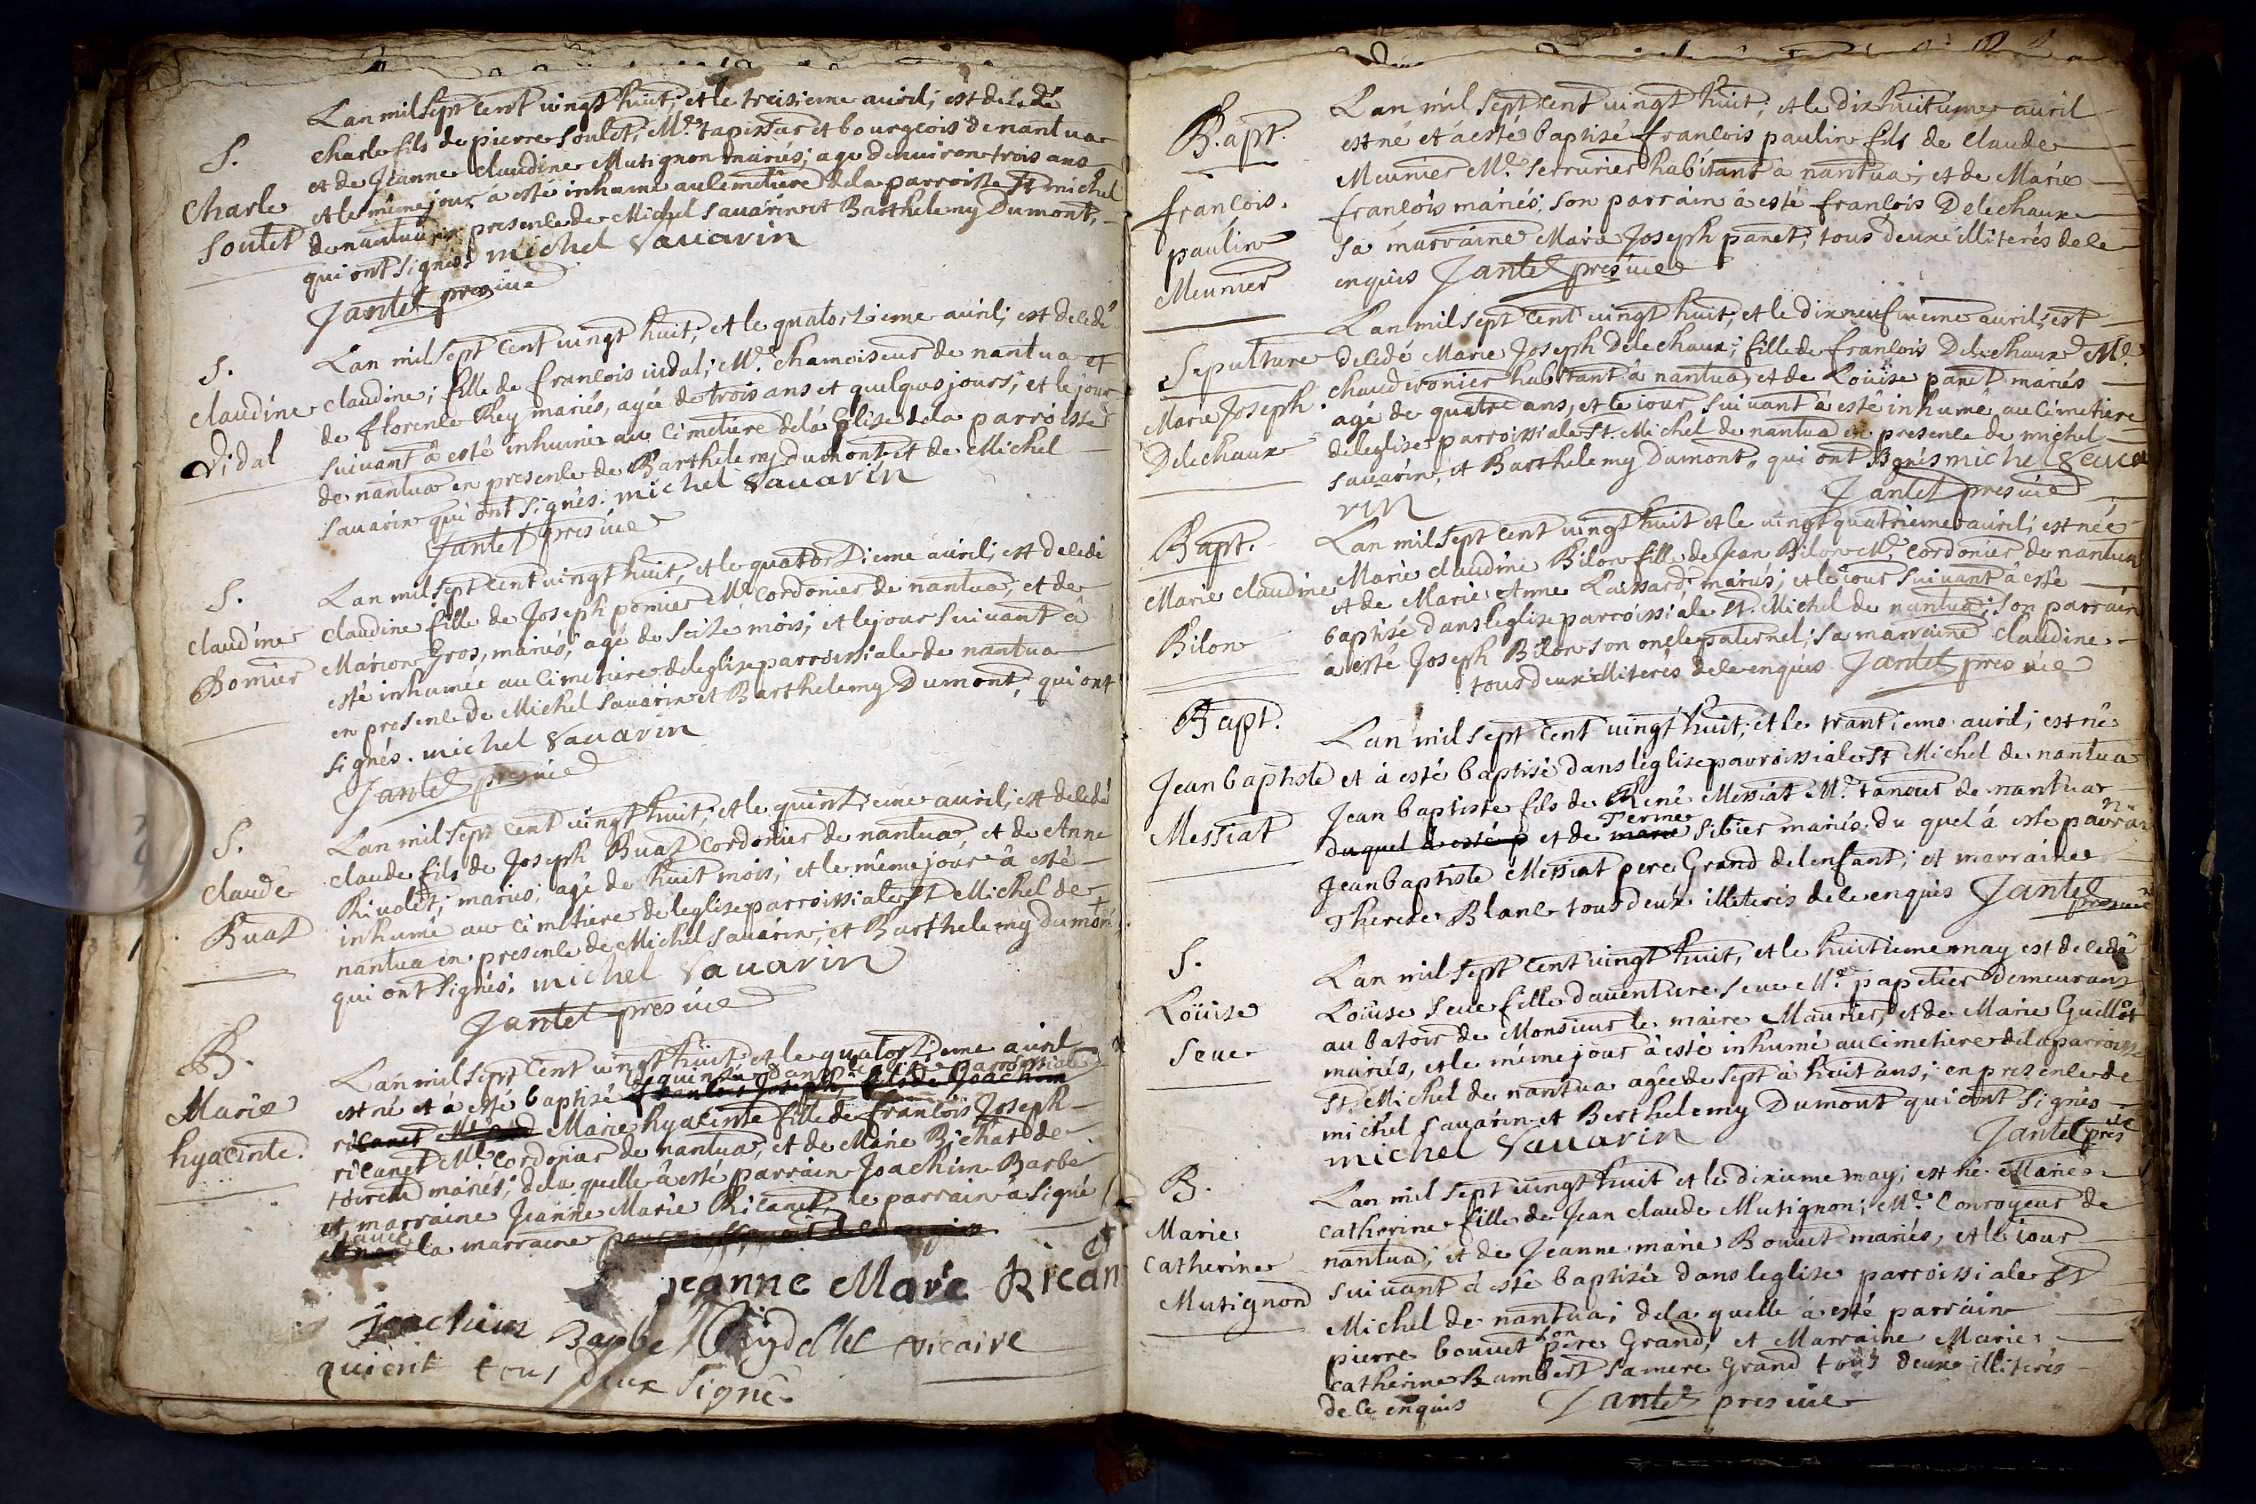 S.
Charle
Soulet
Lan mil sept Cent uingt huit, et le treisieme auril; est decedé
Charle fils de pierre Soulet, Me. tapissur et bourgeois de nantua
et de Jeanne Claudine Mutignon mariés; age denuiron trois ans
et le même jour à esté inhumé au Cimetiere dela parroisse St michel
de nantua en presence de Michel Sauarin et Barthelemy Dumont,
qui ont signés michel Sauarin
Jantet pres uic
S.
Claudine
Vidal
Lan mil sept Cent uingt huit, et le quatorzieme auril; est decedé
Claudine; fille de francois uidal; Me. Chamoiseur de nantua et
de florence Rey mariés, agée de trois ans et quelques jours; et le jour
suiuant à esté inhumée au Cimetiere dela Eglise dela parroisse
de nantua en presence de Barthelemy dumont et de Michel
Sauarin qui ont signés. michel Sauarin
Jantet pres uic
S.
Claudine
Pomier
Lan mil sept Cent uingt huit, et le quatorzieme auril; est decedé
Claudine fille de Joseph pomier Me Cordonier de nantua, et de
Marion Gros, mariés; agé de seize mois; et le jour suiuant à
esté inhumée au Cimetiere deleglise parroissiale de nantua
en presence de Michel Sauarin et Barthelemy Dumont, qui ont
signés. michel Sauarin
Jantet pres uic
S.
Claude
Buat
Lan mil sept Cent uingt huit; et le quinzieme auril; est decedé
Claude fils de Joseph Buat Cordonier de nantua, et de Anne
Riuolet; mariés; agé de huit mois; et le même jour à esté
inhumé au Cimetiere deleglise parroissiale St Michel de
nantua en presence de Michel Sauarin, et Barthelemy dumont
qui ont signés. michel Sauarin
Jantet pres uic
B.
Marie
hyacinte.
Lan mil sept Cent uingt huit et le quatorzieme auril
est né et à esté baptisé francois Joseph fils de Joachim
ricanet Marie hyacinte fille de francois Joseph
ricanet Me Cordonier de nantua, et de Marie Bichat de
toirette mariés; dela quelle à esté parrain Joachim Barbe
et marraine Jeanne Marie Ricanet, le parrain à signé
auec la marraine
jeanne Marie Rican
et
Joachim Barbe vicaire
qui ont tous deux signé.
Bapt.
francois.
paulin
Meunier
Lan mil sept Cent uingt huit; et le dix huitieme auril
est né et à esté baptisé francois paulin fils de Claude
Meunier Me. Serrurier habitant à nantua; et de Marie
francois mariés; son parrain à esté francois Delechaux
sa marraine Marie Joseph panet; tous deux illiterés de ce
enquis Jantet pres uic
Sepulture
Marie Joseph.
Delechaux
Lan mil sept Cent uingt huit; et le dix neufuieme auril; est
decedé Marie Joseph Delechaux; fille de francois Delechaux Me.
Chaudronier habitant à nantua, et de Loüise panet mariés
agé de quatre ans, et le iour suiuant à esté inhumé au Cimetiere
deleglise parroissiale St. Michel de nantua en presence de michel
sauarin, et Barthelemy Dumont, qui ont signés michel Saua
rin
Jantet pres uic
Bapt.
Marie Claudine
Bilon
Lan mil sept Cent uingt huit et le uingt quatrieme auril; est née
Marie Claudine Bilon fille de Jean Bilon Me. Cordonier de nantua
et de Marie Anne Laissard, mariés; et le iour suiuant à esté
baptisé dans leglise parroissiale St. Michel de nantua; son parrain
à esté Joseph Bilon son oncle paternel; sa marraine Claudine
tous deux illiterés de ce enquis Jantet pres uic
Bapt.
Jean baptiste
Messiat
Lan mil sept Cent uingt huit; et le trantieme auril; est né
et à esté baptisé dans leglise parroissiale St Michel de nantua
Jean baptiste fils de René Messiat Me. tanour de nantua
du quel à esté p et de Perine Sibier mariés du quel à este parrain
Jean baptiste Messiat pere Grand de lenfant; et marraine
Therese Blanc tous deux illiterés de ce enquis Jantet
pres uic
S.
Loüise
Seue
Lan mil sept Cent uingt huit, et le huitieme may est decedé
Loüise Seue fille dauenture Seue Me. papetier demeurant
au batoir de Monsieur le maire Maurier, et de Marie Guillot
mariés, et le même jour à esté inhumé au Cimetiere dela parroisse
St. Michel de nantua agée de sept à huit ans; en presence de
michel Sauarin et Berthelemy Dumont qui ont signés
michel Sauarin
Jantet pres uic
B.
Marie
Catherine
Mutignon
Lan mil sept uingt huit et le dixieme may; est né Marie
Catherine fille de Jean Claude Mutignon; Me. Conroyeur de
nantua; et de Jeanne marie Bouuet mariés, et le iour
suiuant à esté baptisée dans leglise parroissiale St
Michel de nantua; dela quelle à esté parrain
pierre bouuet son pere Grand, et Marraine Marie
Catherine Rambert sa mere Grand tous deux illiterés
de ce enquis Jantet pres uic